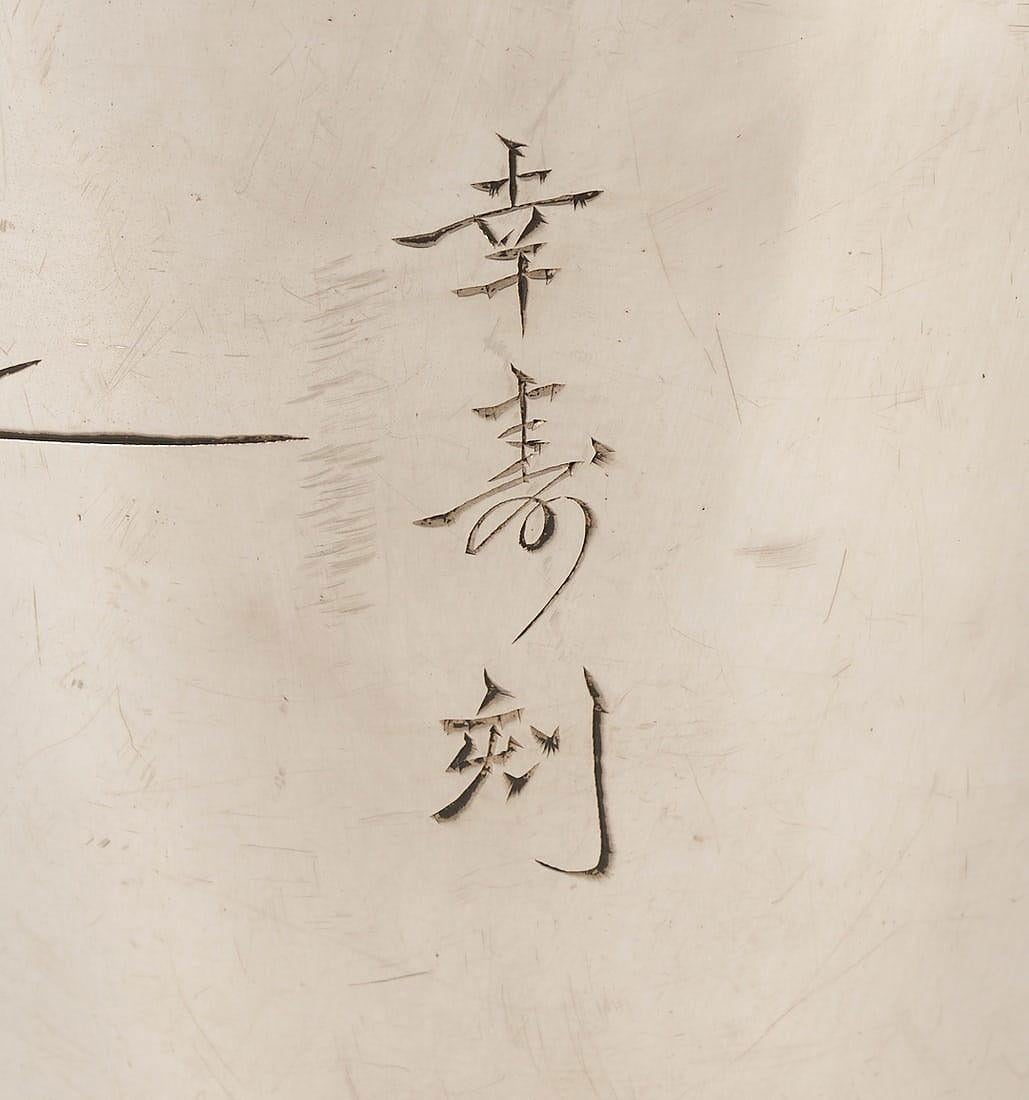 幸寿刻